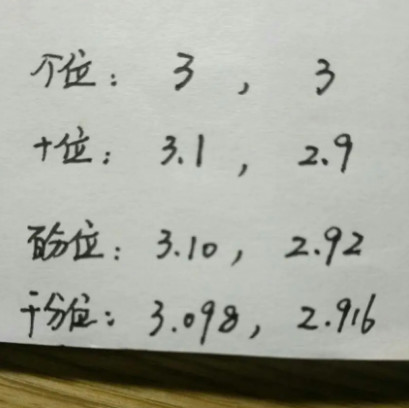 个位: 3, 3
十位: 3.1, 2.9
百分位: 3.10, 2.92
千分位: 3.098, 2.916